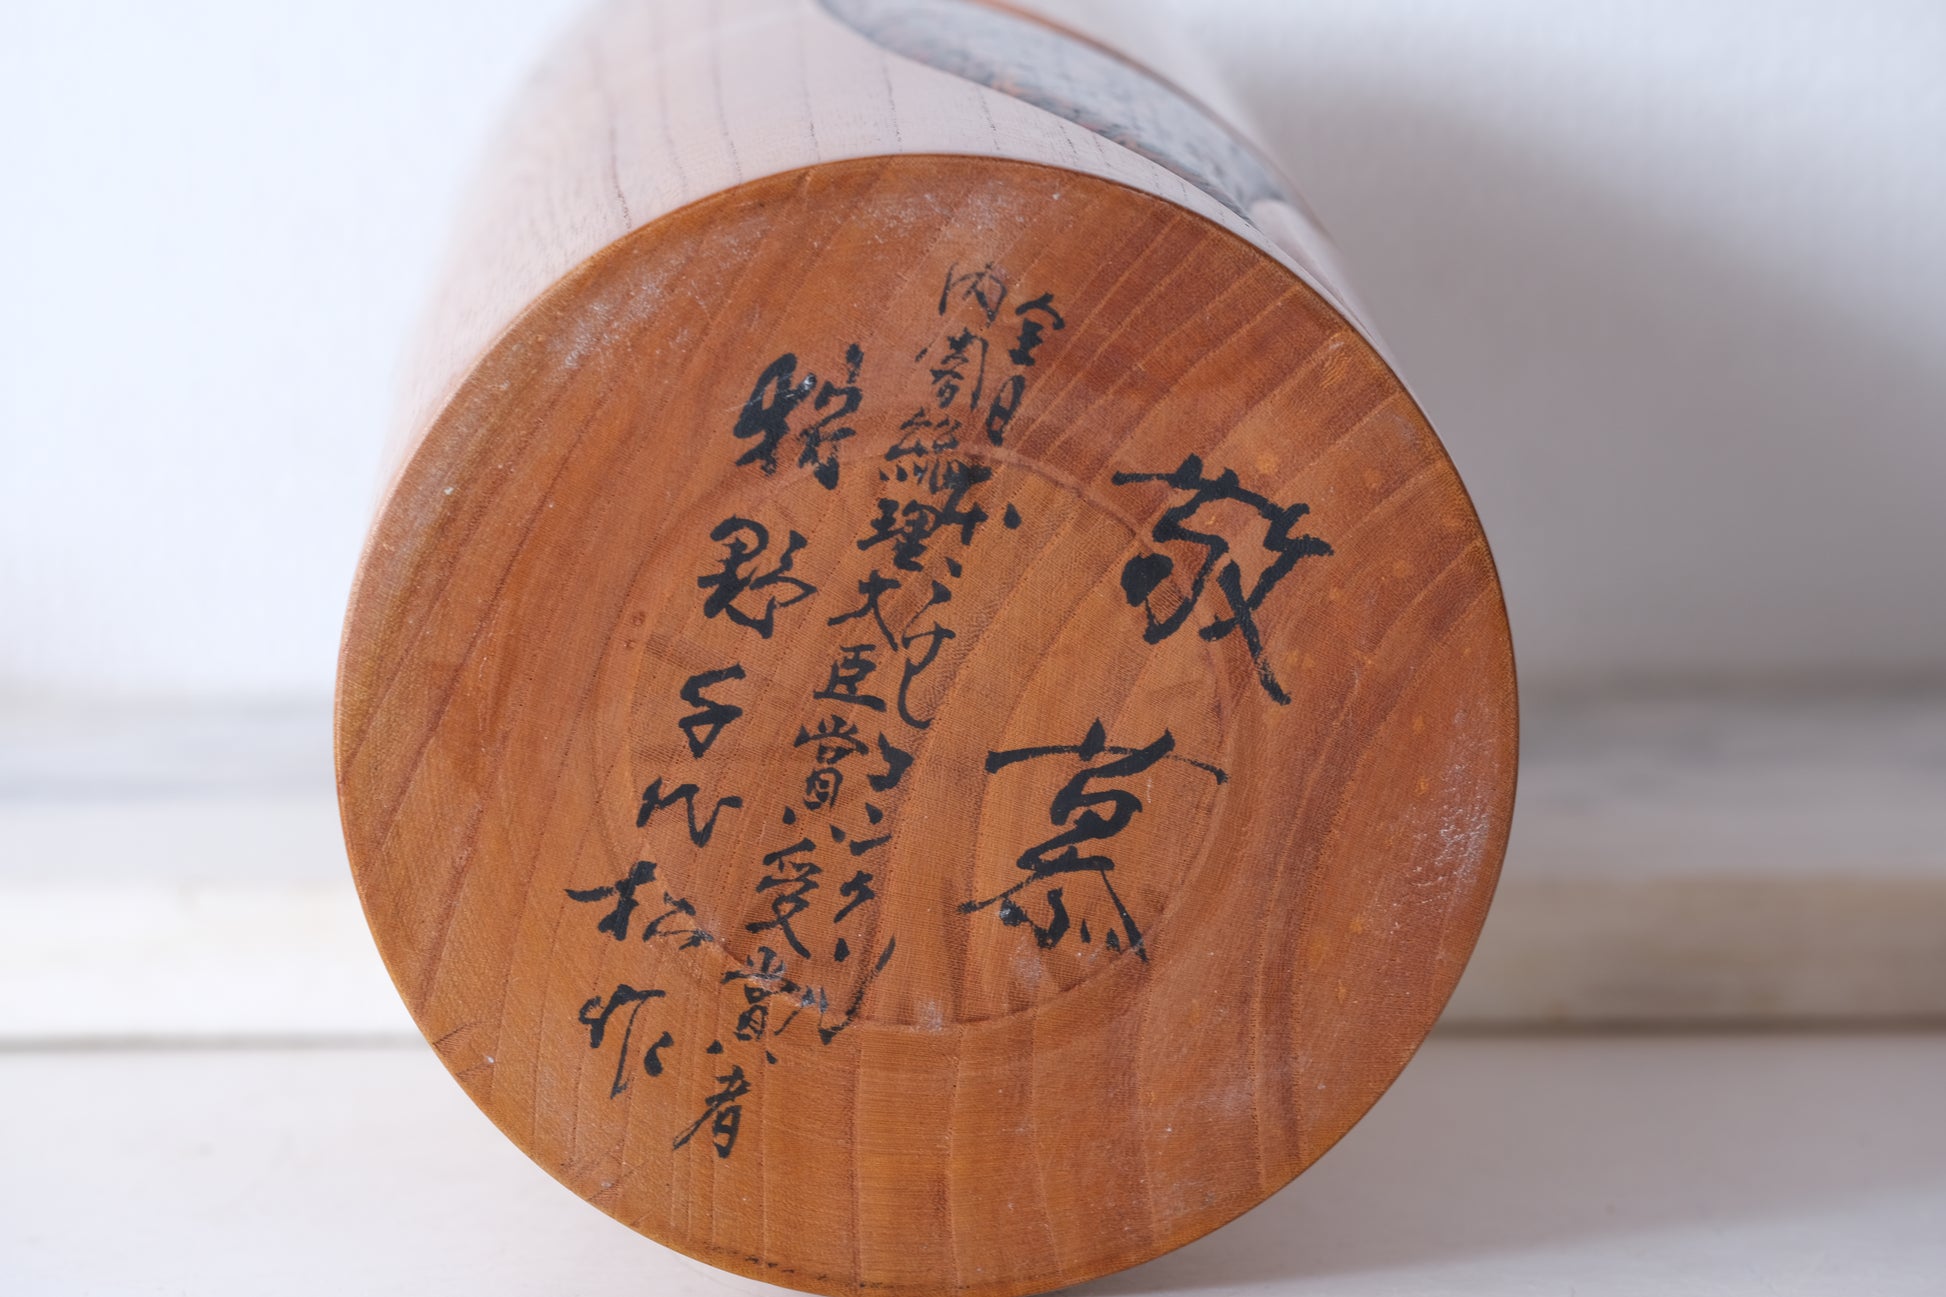 敬慕
全日本こけしコンクール
内閣総理大臣賞受賞者
粕野千代松作